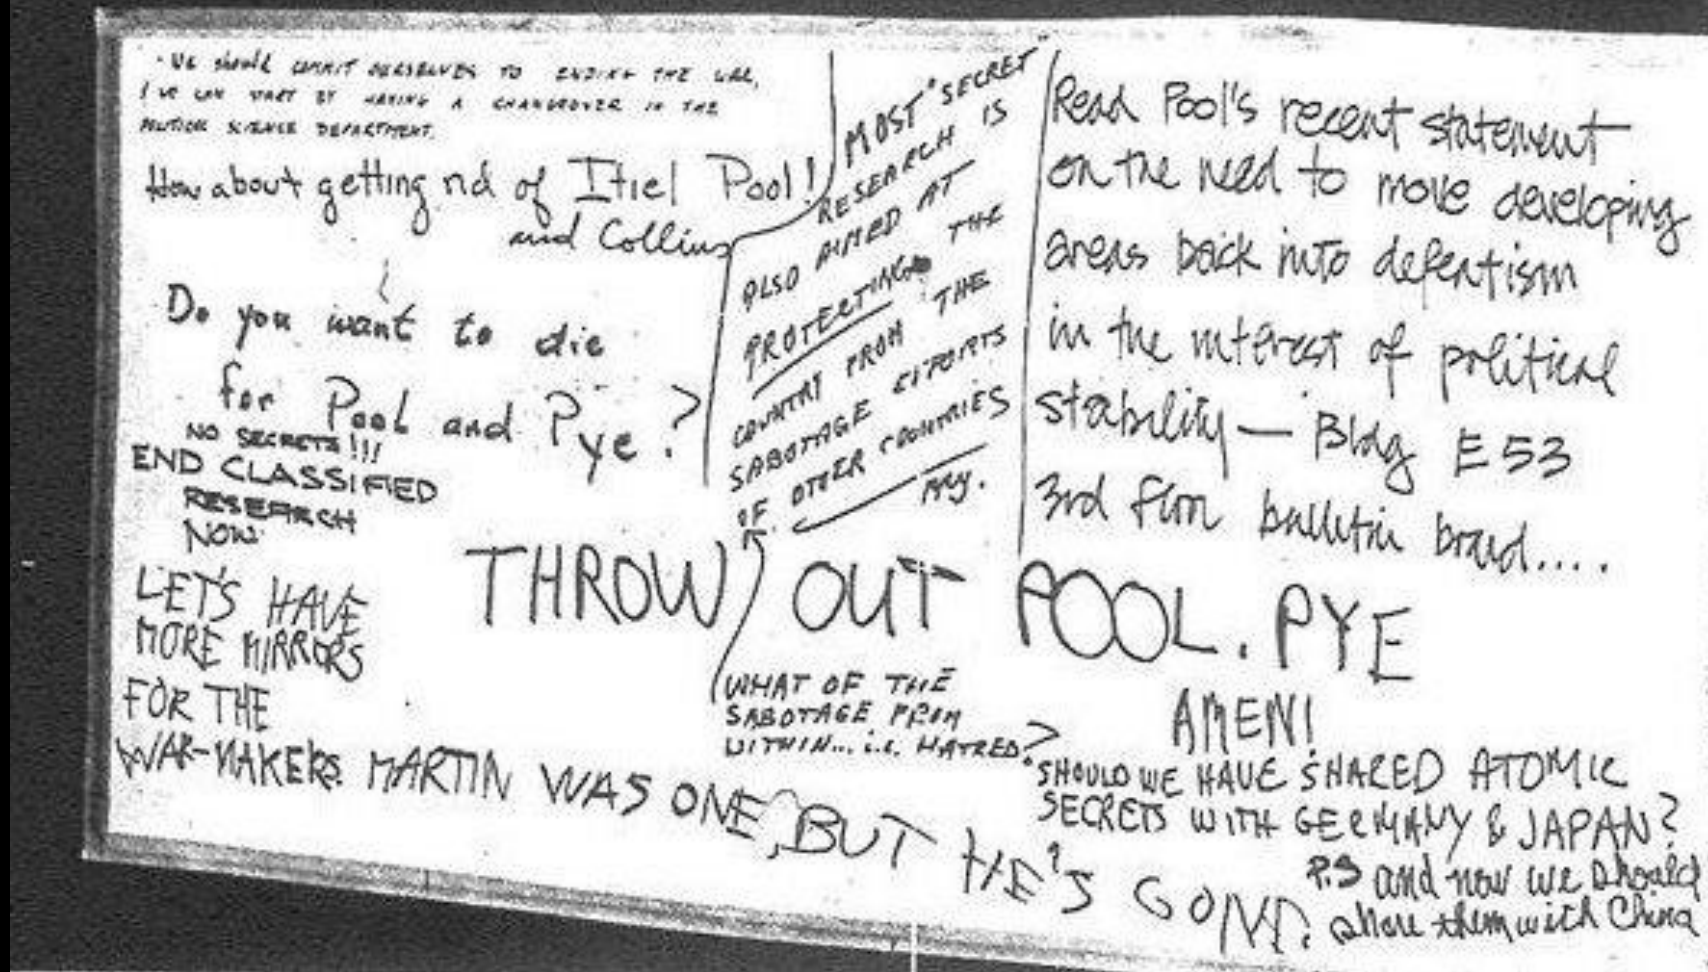 - We should commit ourselves to ending the war,
& we can start by having a changeover in the
political science department.
How about getting rid of Ithiel Pool!
and Collins
Do you want to die
for Pool and Pye?
NO SECRETS!!!
END CLASSIFIED
RESEARCH
NOW.
LET'S HAVE
MORE MIRRORS
FOR THE
WAR-MAKERS. MARTIN WAS ONE, BUT HE'S GONE.
MOST "SECRET"
RESEARCH IS
ALSO AIMED AT
PROTECTING THE
COUNTRY FROM THE
SABOTAGE EFFORTS
OF OTHER COUNTRIES
THROW OUT POOL. PYE
WHAT OF THE
SABOTAGE FROM
WITHIN... i.e. HATRED?
Read Pool's recent statement
on the need to move developing
areas back into defeatism
in the interest of political
stability — Bldg E 53
3rd floor bulletin board....
AMEN!
SHOULD WE HAVE SHARED ATOMIC
SECRETS WITH GERMANY & JAPAN?
P.S and now we should
share them with China